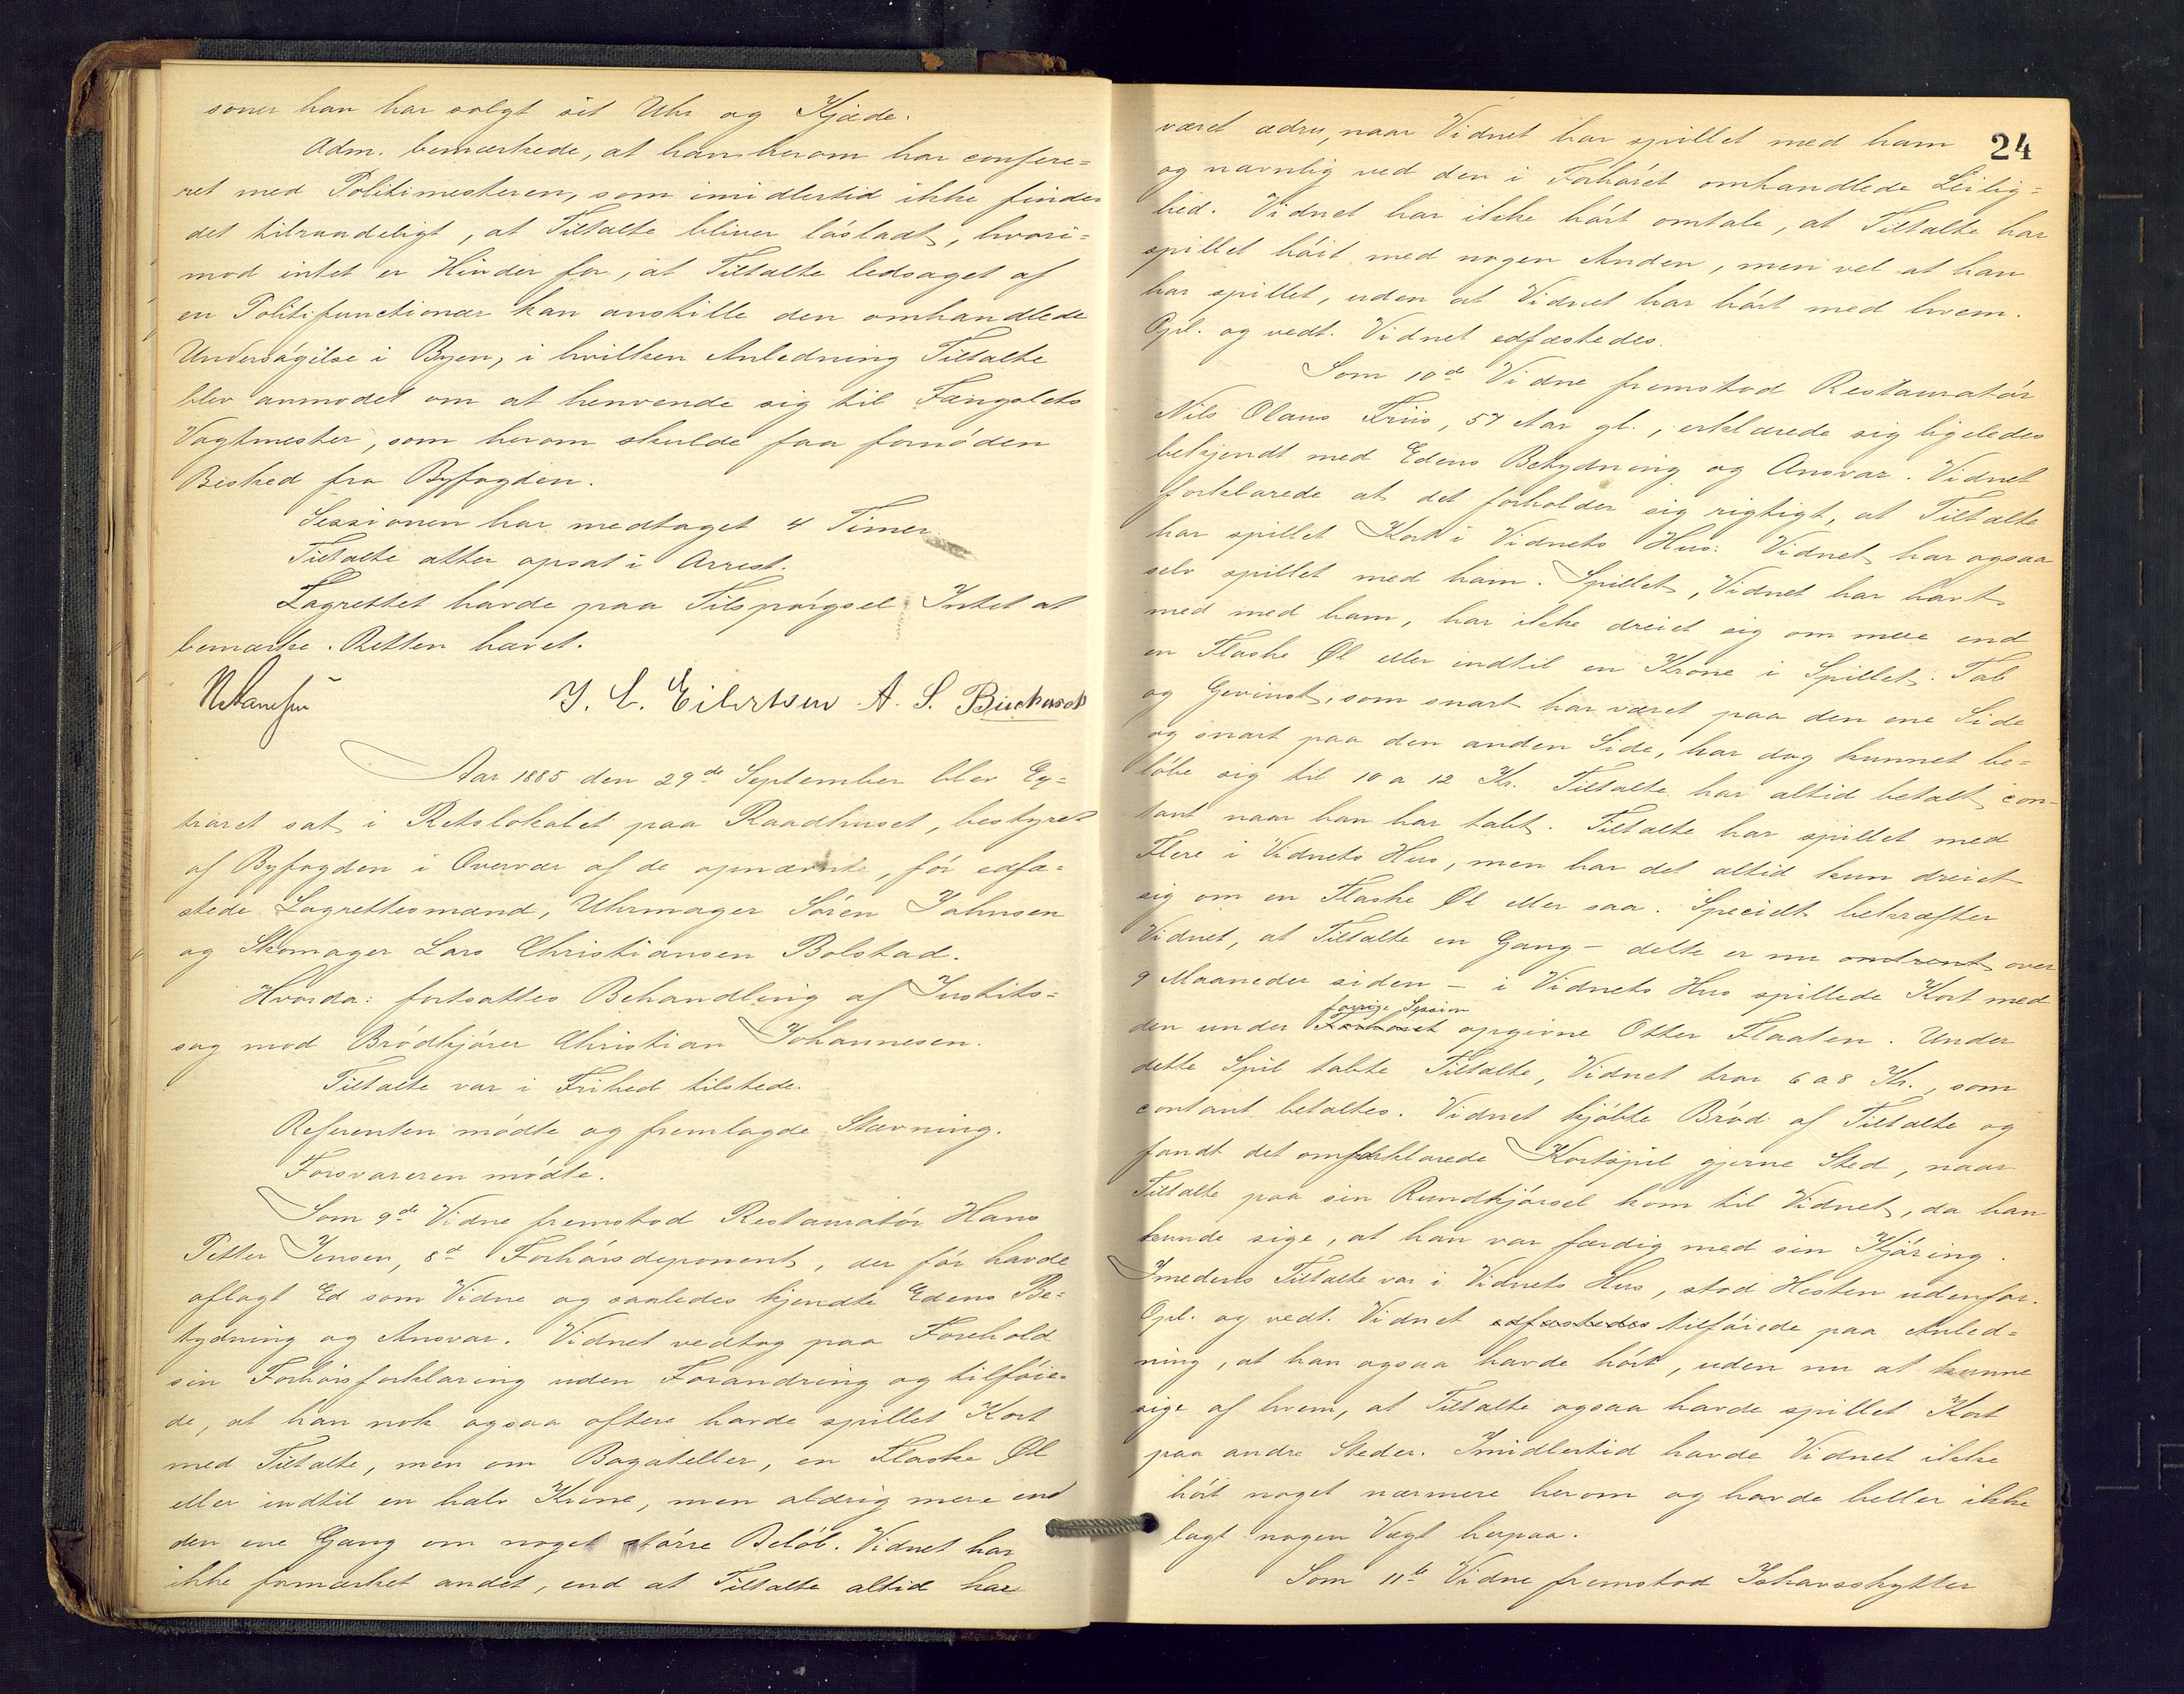 soner han har solgt sit Uhr og Kjæde.
Adm. bemærkede, at han herom har confere=
ret med Politimesteren, som imidlertid ikke finder
det tilraadeligt, at Tiltalte bliver løsladt, hvori=
mod intet er Hinder for, at Tiltalte ledsaget af
en Politifunctionær kan anstille den omhandlede
Undersøgelse i Byen, i hvilken Anledning Tiltalte
blev anmodet om at henvende sig til Fængslets
Vagtmester, som herom skulde faa fornøden
Besked fra Byfogden.
Sessionen har medtaget 4 Timer
Tiltalte atter opsat i Arrest.
Lagrettet havde paa Tilspørgsel Intet at
bemærke. Retten hævet.
J. C. Eilertsen A. S. Buchardt
Aar 1885 den 29de September blev Ex=
traret sat i Retslokalet paa Raadhuset, bestyret
af Byfogden i Overvær af de opnævnte, før edfæ=
stede Lagrettesmænd, Uhrmager Søren Johnsen
og Skomager Lars Christiansen Bolstad.
Hvorda: fortsattes Behandling af Justits=
sag mod Brødkjører Christian Johannesen.
Tiltalte var i Frihed tilstede.
Referenten mødte og fremlagde Stævning.
Forsvareren mødte.
Som 9de Vidne fremstod Restauratør Hans
Petter Jensen, 8d Forhørsdeponent, der før havde
aflagt Ed som Vidne og saaledes kjendte Edens Be=
tydning og Ansvar. Vidnet vedtog paa Forehold
sin Forhørsforklaring uden Forandring og tilføie=
de, at han nok ogsaa oftere havde spillet Kort
med Tiltalte, men om Bagateller, en Flaske Øl
eller indtil en halv Krone, men aldrig mere end
den ene Gang om noget større Beløb. Vidnet har
ikke formærket andet, end at Tiltalte altid har
24
været ædru, naar Vidnet har spillet med ham
og navnlig ved den i Forhøret omhandlede Leilig=
hed. Vidnet har ikke hørt omtale, at Tiltalte har
spillet høit med nogen Anden, men vel at han
har spillet, uden at Vidnet har hørt med hvem.
Opl. og vedt. Vidnet edfæstedes.
Som 10de Vidne fremstod Restauratør
Nils Olaus Friis, 57 Aar gl., erklærede sig ligeledes
bekjendt med Edens Betydning og Ansvar. Vidnet
forklarede at det forholder sig rigtigt, at Tiltalte
har spillet Kort i Vidnets Hus: Vidnet har ogsaa
selv spillet med ham. Spillet, Vidnet har havt
med med ham, har ikke dreiet sig om mere end
en Flaske Øl eller indtil en Krone i Spillet. Tab
og Gevinst, som snart har været paa den ene Side
og snart paa den anden Side, har dog kunnet be=
løbe sig til 10 a 12 Kr. Tiltalte har altid betalt con=
tant naar han har tabt. Tiltalte har spillet med
Flere i Vidnets Hus, men har det altid kun dreiet
sig om en Flaske Øl eller saa. Specielt bekræfter
Vidnet, at Tiltalte en Gang – dette er nu omtrent over
9 Maaneder siden – i Vidnets Hus spillede Kort med
forrige Session
den under Forhøret opgivne Otter Flaaten. Under
dette Spil tabte Tiltalte, Vidnet tror 6 a 8 Kr., som
contant betaltes. Vidnet kjøbte Brød af Tiltalte og
fandt det omforklarede Kortspil gjerne Sted, naar
Tiltalte paa sin Rundkjørsel kom til Vidnet, da han
kunde sige, at han var færdig med sin Kjøring.
Imedens Tiltalte var i Vidnets Hus, stod Hesten udenfor.
Opl. og vedt. Vidnet edfæstedes tilføiede paa Anled=
ning, at han ogsaa havde hørt, uden nu at kunne
sige af hvem, at Tiltalte ogsaa havde spillet Kort
paa andre Steder. Imidlertid havde Vidnet ikke
hørt noget nærmere herom og havde heller ikke
lagt nogen Vægt herpaa.
Som 11te Vidne fremstod Ishavsskytter